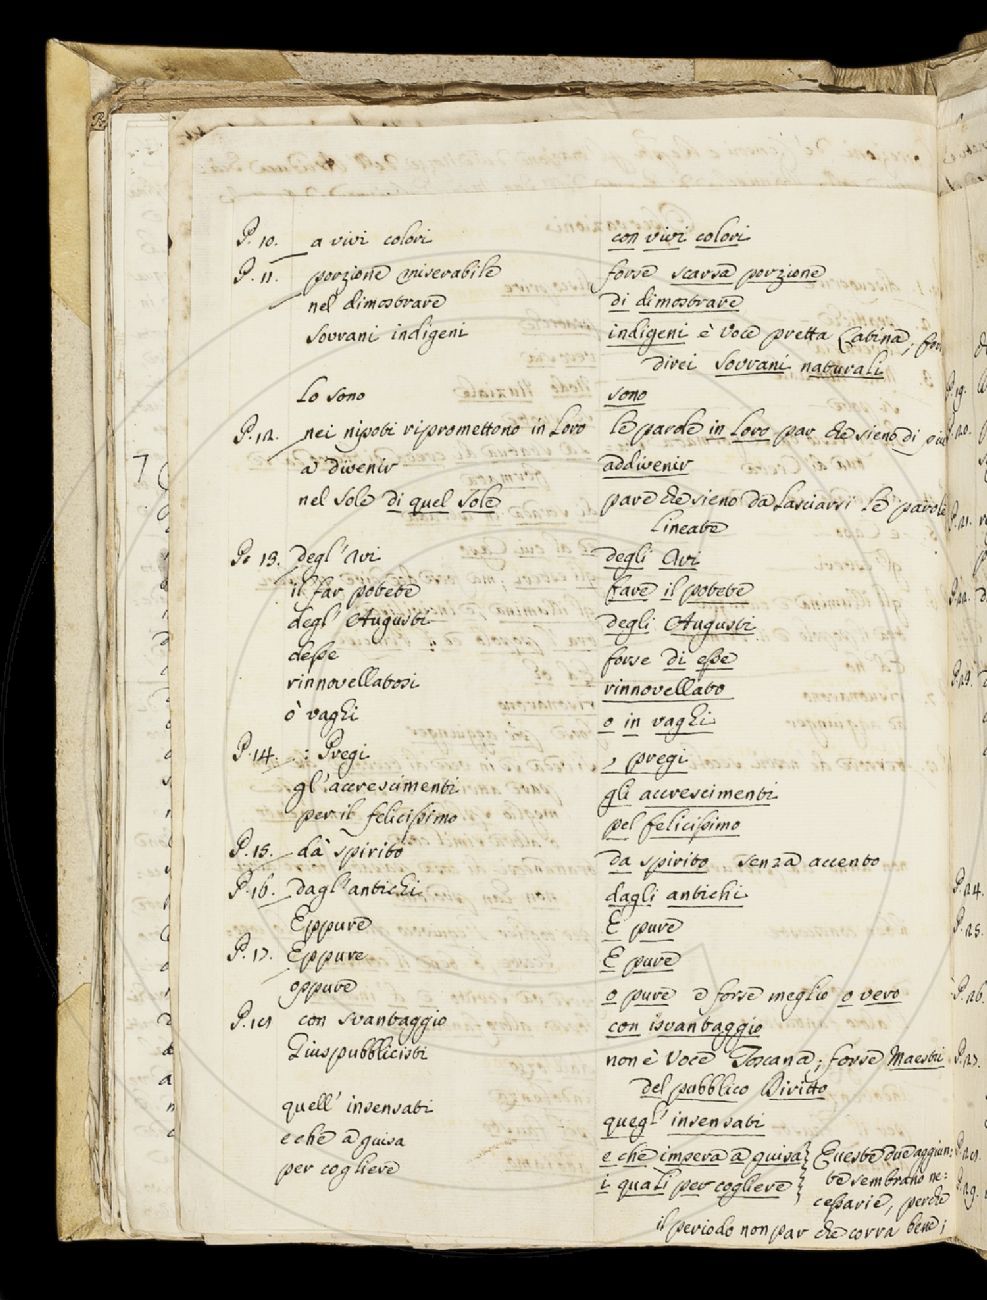 P. 10. a vivi colori con vivi colori
P. 11. porzione miserabile forse scarsa porzione
nel dimostrare di dimostrare
Sovrani indigeni indigeni è Voce pretta Latina;
direi Sovrani naturali
Lo sono sono
P. 12. nei nipoti ripromettono in Loro le parole in Loro par che sieno di
a divenir addivenir
nel Sole di quel Sole pare che sieno da Lasciarsi le parole
lineate
P. 13. degl'Avi degli Avi
il far potete fare il potete
degl'Augusti degli Augusti
desse forse di esse
rinnovellatosi rinnovellato
ò vaghi o in vaghi
P. 14. : Pregi , pregi
gl'accrescimenti gli accrescimenti
per il felicissimo pel felicissimo
P. 15. dà spirito da spirito senza accento
P. 16. dagl'antichi dagli antichi
Eppure E pure
P. 17. Eppure E pure
oppure o pure e forse meglio o vero
con svantaggio con isvantaggio
Giuspubblicisti non è Voce Toscana; forse Maestri
del pubblico Diritto
quell' insensati quegl' insensati
e che a guisa e che impera a guisa } Queste due aggiun:
per cogliere i quali per cogliere } te sembrano ne:
cessarie, perchè
il periodo non par che corra bene;